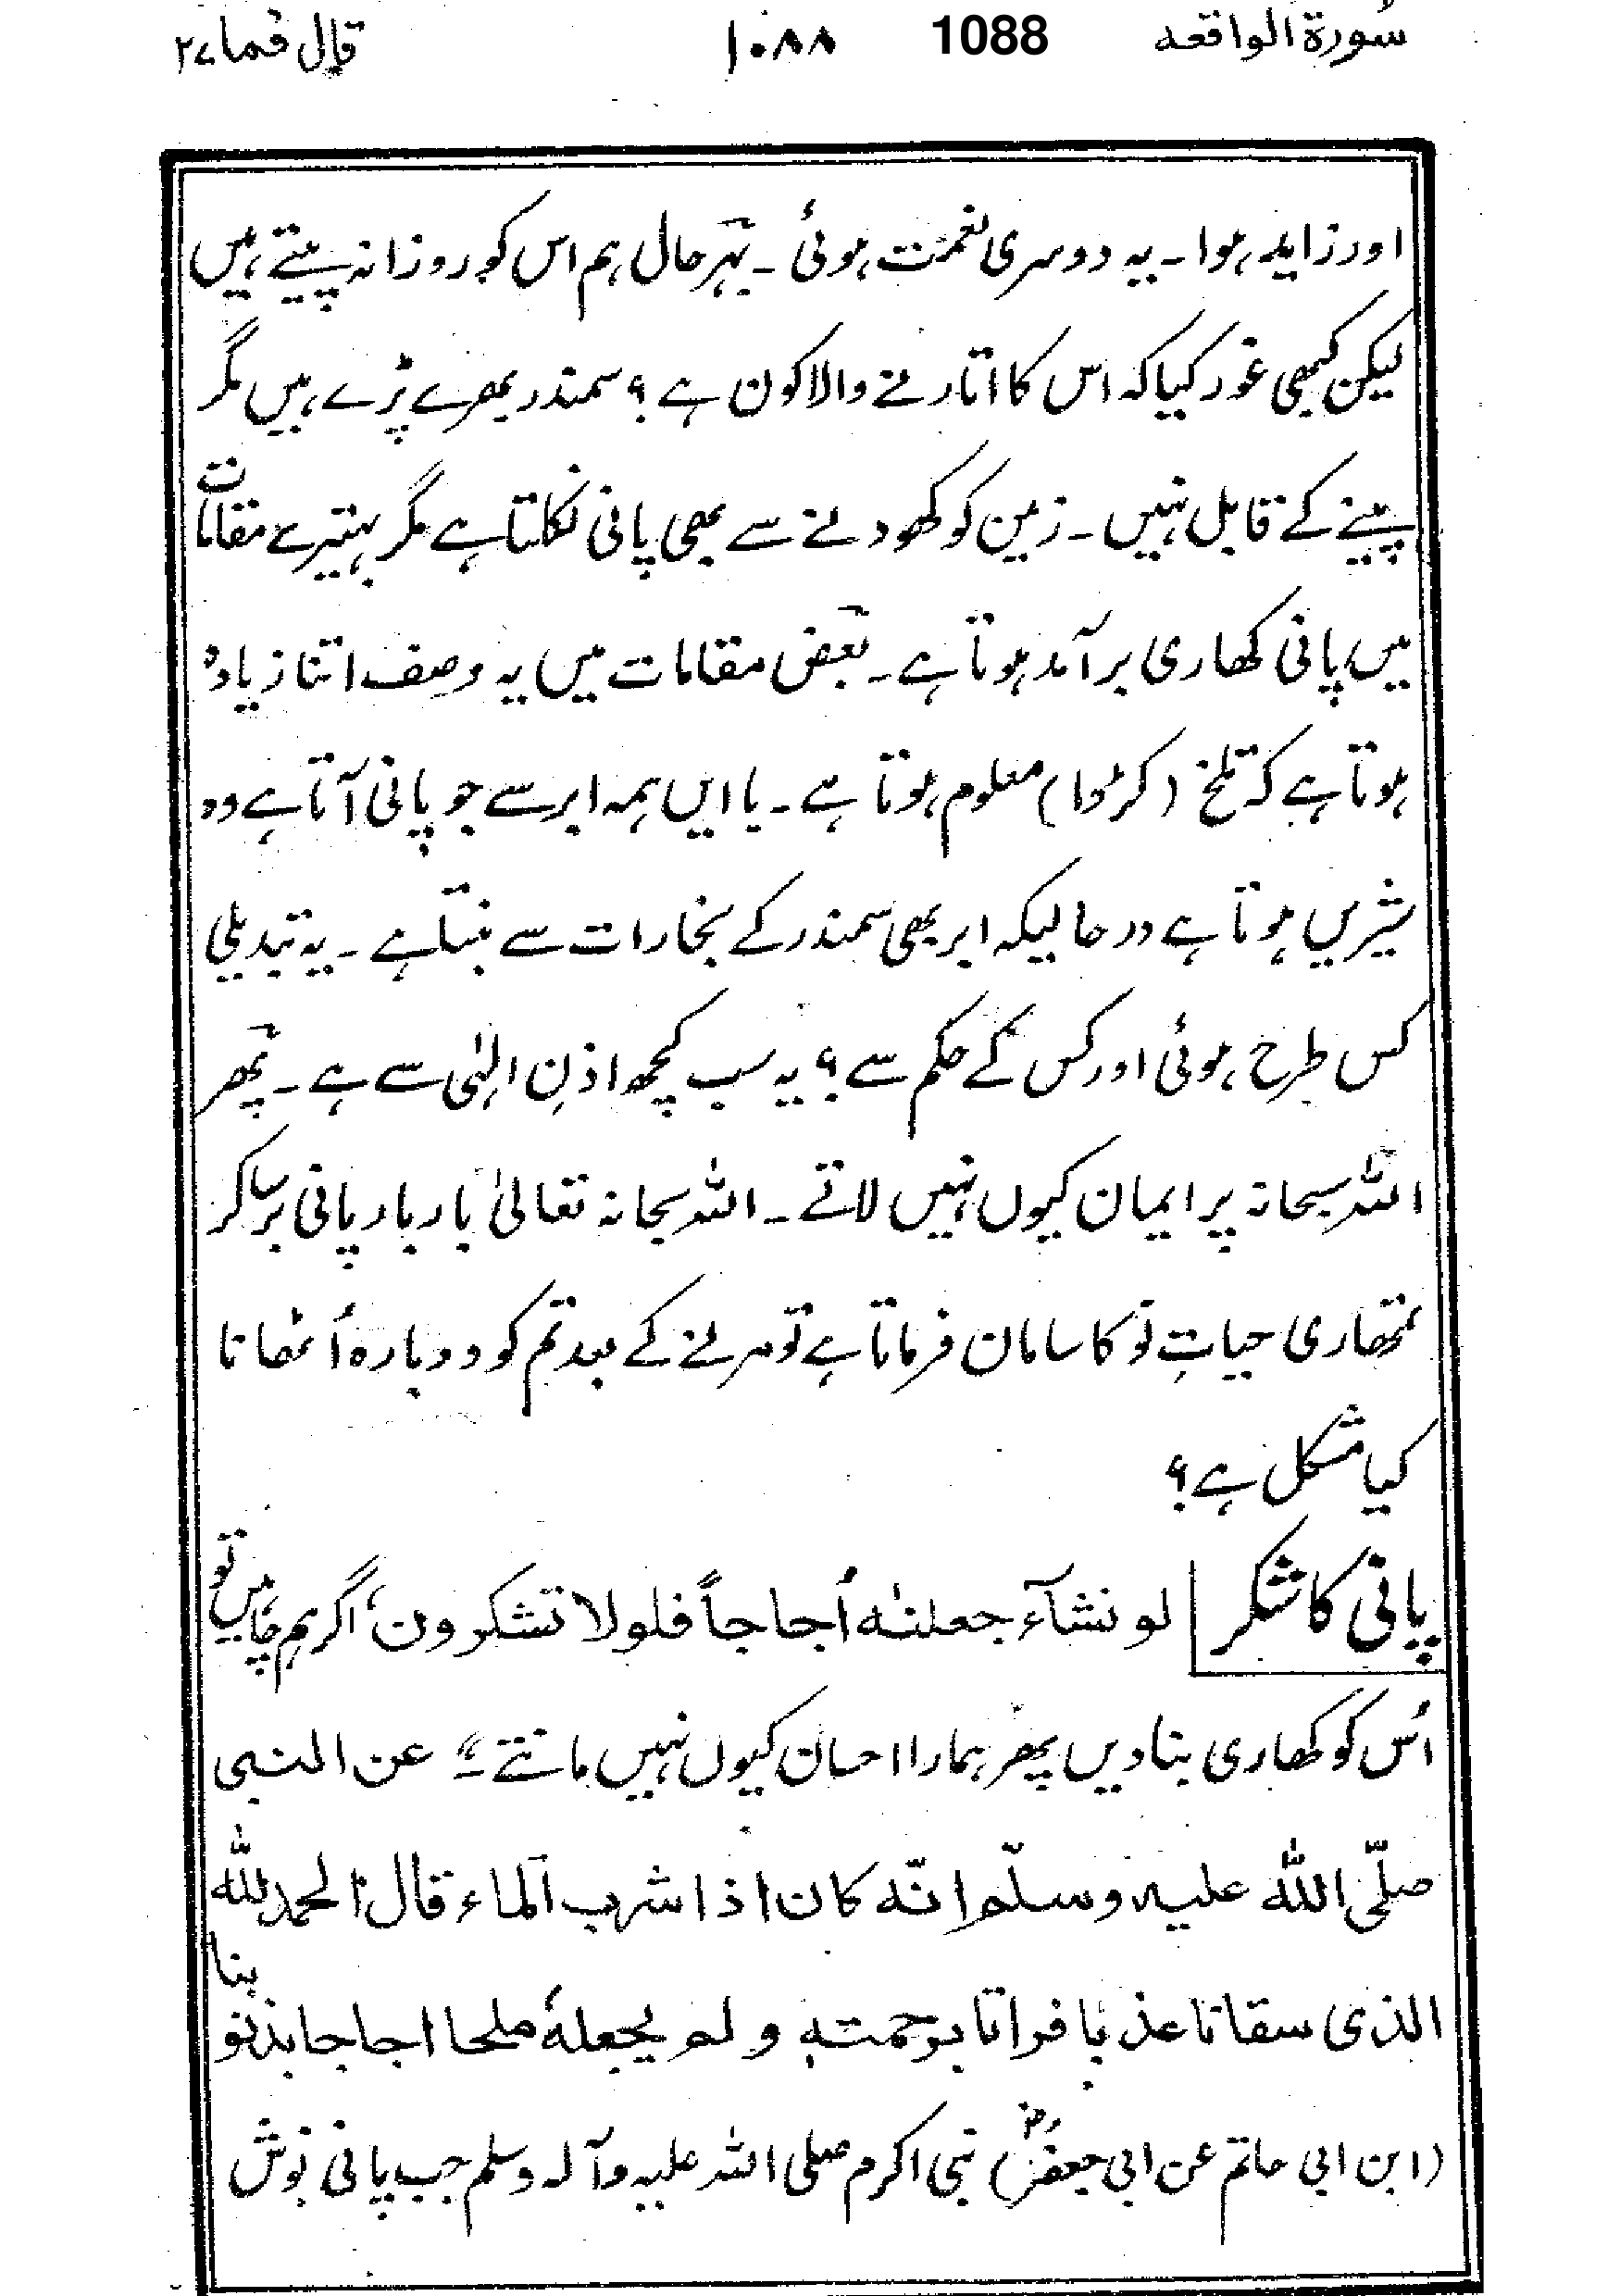 سورة الواقعه 1088 ۱۰۸۸ قال فما ۲۷
اور زاید ہوا۔ یہ دوسری نعمت ہوئی۔ بہرحال ہم اس کو روزانہ پیتے ہیں
لیکن کبھی غور کیا کہ اس کا اتارنے والا کون ہے؟ سمندر بھرے پڑے ہیں مگر
پینے کے قابل نہیں۔ زمین کو کھودنے سے بھی پانی نکلتا ہے مگر بہتیرے مقامات
میں پانی کھاری برآمد ہوتا ہے۔ بعض مقامات میں یہ وصف اتنا زیادہ
ہوتا ہے کہ تلخ (کڑوا) معلوم ہوتا ہے۔ با ایں ہمہ ابر سے جو پانی آتا ہے وہ
شیریں ہوتا ہے درحالیکہ ابر بھی سمندر کے بخارات سے بنتا ہے۔ یہ تبدیلی
کس طرح ہوئی اور کس کے حکم سے؟ یہ سب کچھ اذنِ الٰہی سے ہے۔ پھر
اللہ سبحانہ پر ایمان کیوں نہیں لاتے۔ اللہ سبحانہ تعالیٰ بار بار پانی برسا کر
تمھاری حیاتِ نو کا سامان فرماتا ہے تو مرنے کے بعد تم کو دوبارہ اُٹھانا
کیا مشکل ہے؟
پانی کا شکر لو نشآء جعلنٰه أجاجاً فلولا تشكرون، اگر ہم چاہیں تو
اُس کو کھاری بنا دیں پھر ہمارا احسان کیوں نہیں مانتے“۔ عن النبی
صلّى الله عليه وسلّم انّه كان اذا شرب الماء قال الحمد لله
الذى سقانا عذبا فراتا برحمته ولم يجعلهٗ ملحا اجاجا بذنوبنا
(ابن ابی حاتم عن ابی جعفرؓ) نبی اکرم صلی اللہ علیہ وآلہ وسلم جب پانی نوش